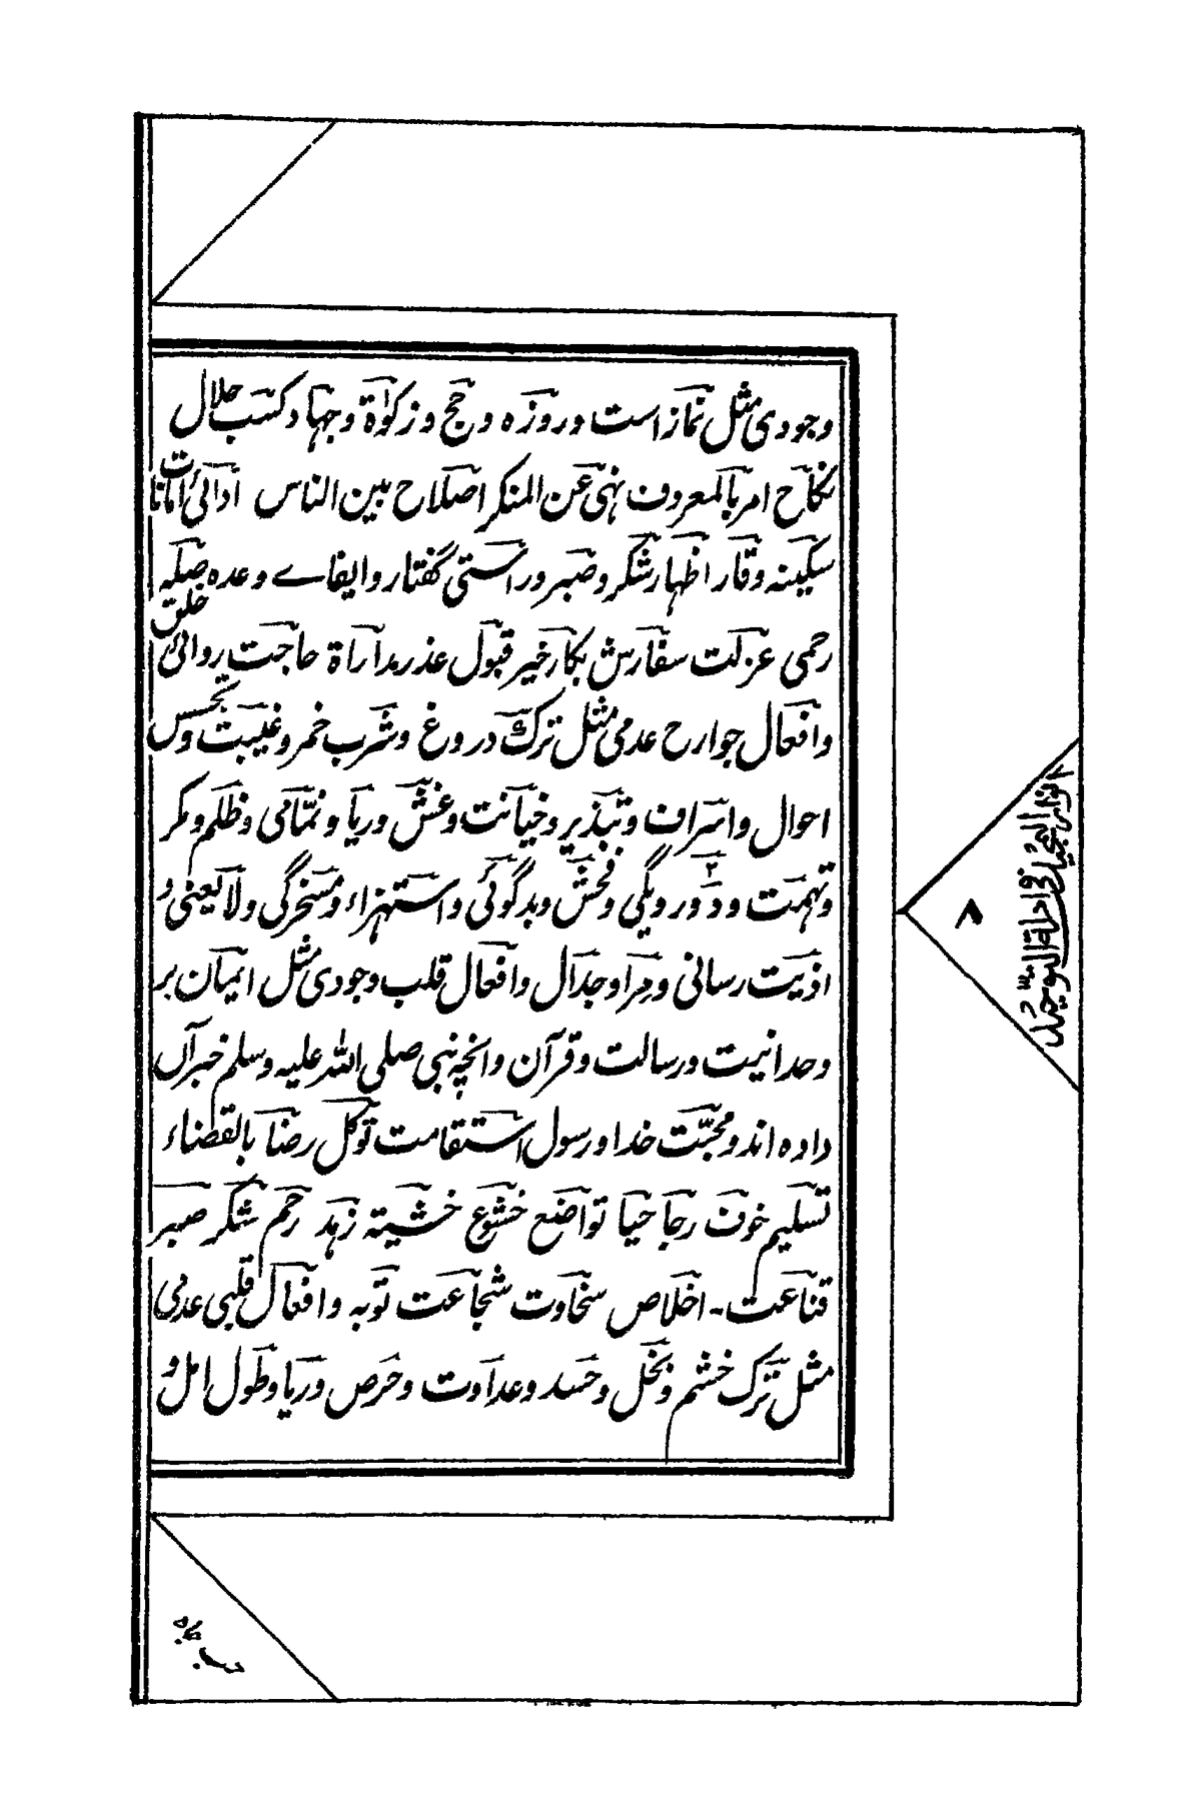 وجودی مثل نماز است و روزه و حج و زکوٰة و جهاد کسب حلال
نکاح امر بالمعروف نهی عن المنکر اصلاح بین الناس ادائی امانات
سکینه وقار اظهار شکر و صبر و راستی گفتار و ایفاے وعده صله
رحمی عزلت سفارش بکار خیر قبول عذر مداراة حاجت روائی خلق
و افعال جوارح عدمی مثل ترک دروغ و شرب خمر و غیبت و تجسس
احوال و اسراف و تبذیر و خیانت و غش و ریا و نمّامی و ظلم و مکر
و تهمت و دو رویگی و فحش و بدگوئی و استهزاء و مسخرگی و لا یعنی و
اذیت رسانی و مراء و جدال و افعال قلب وجودی مثل ایمان بر
وحدانیت و رسالت و قرآن و انچه نبی صلی الله علیه وسلم خبر آں
داده اند و محبّت خدا و رسول استقامت توکل رضا بالقضاء
تسلیم خوف رجا حیا تواضع خشوع خشیته زهد رحم شکر صبر
قناعت۔ اخلاص سخاوت شجاعت توبه و افعال قلبی عدمی
مثل ترک خشم و بخل و حسد و عداوت و حرص و ریا و طول امل و
۸